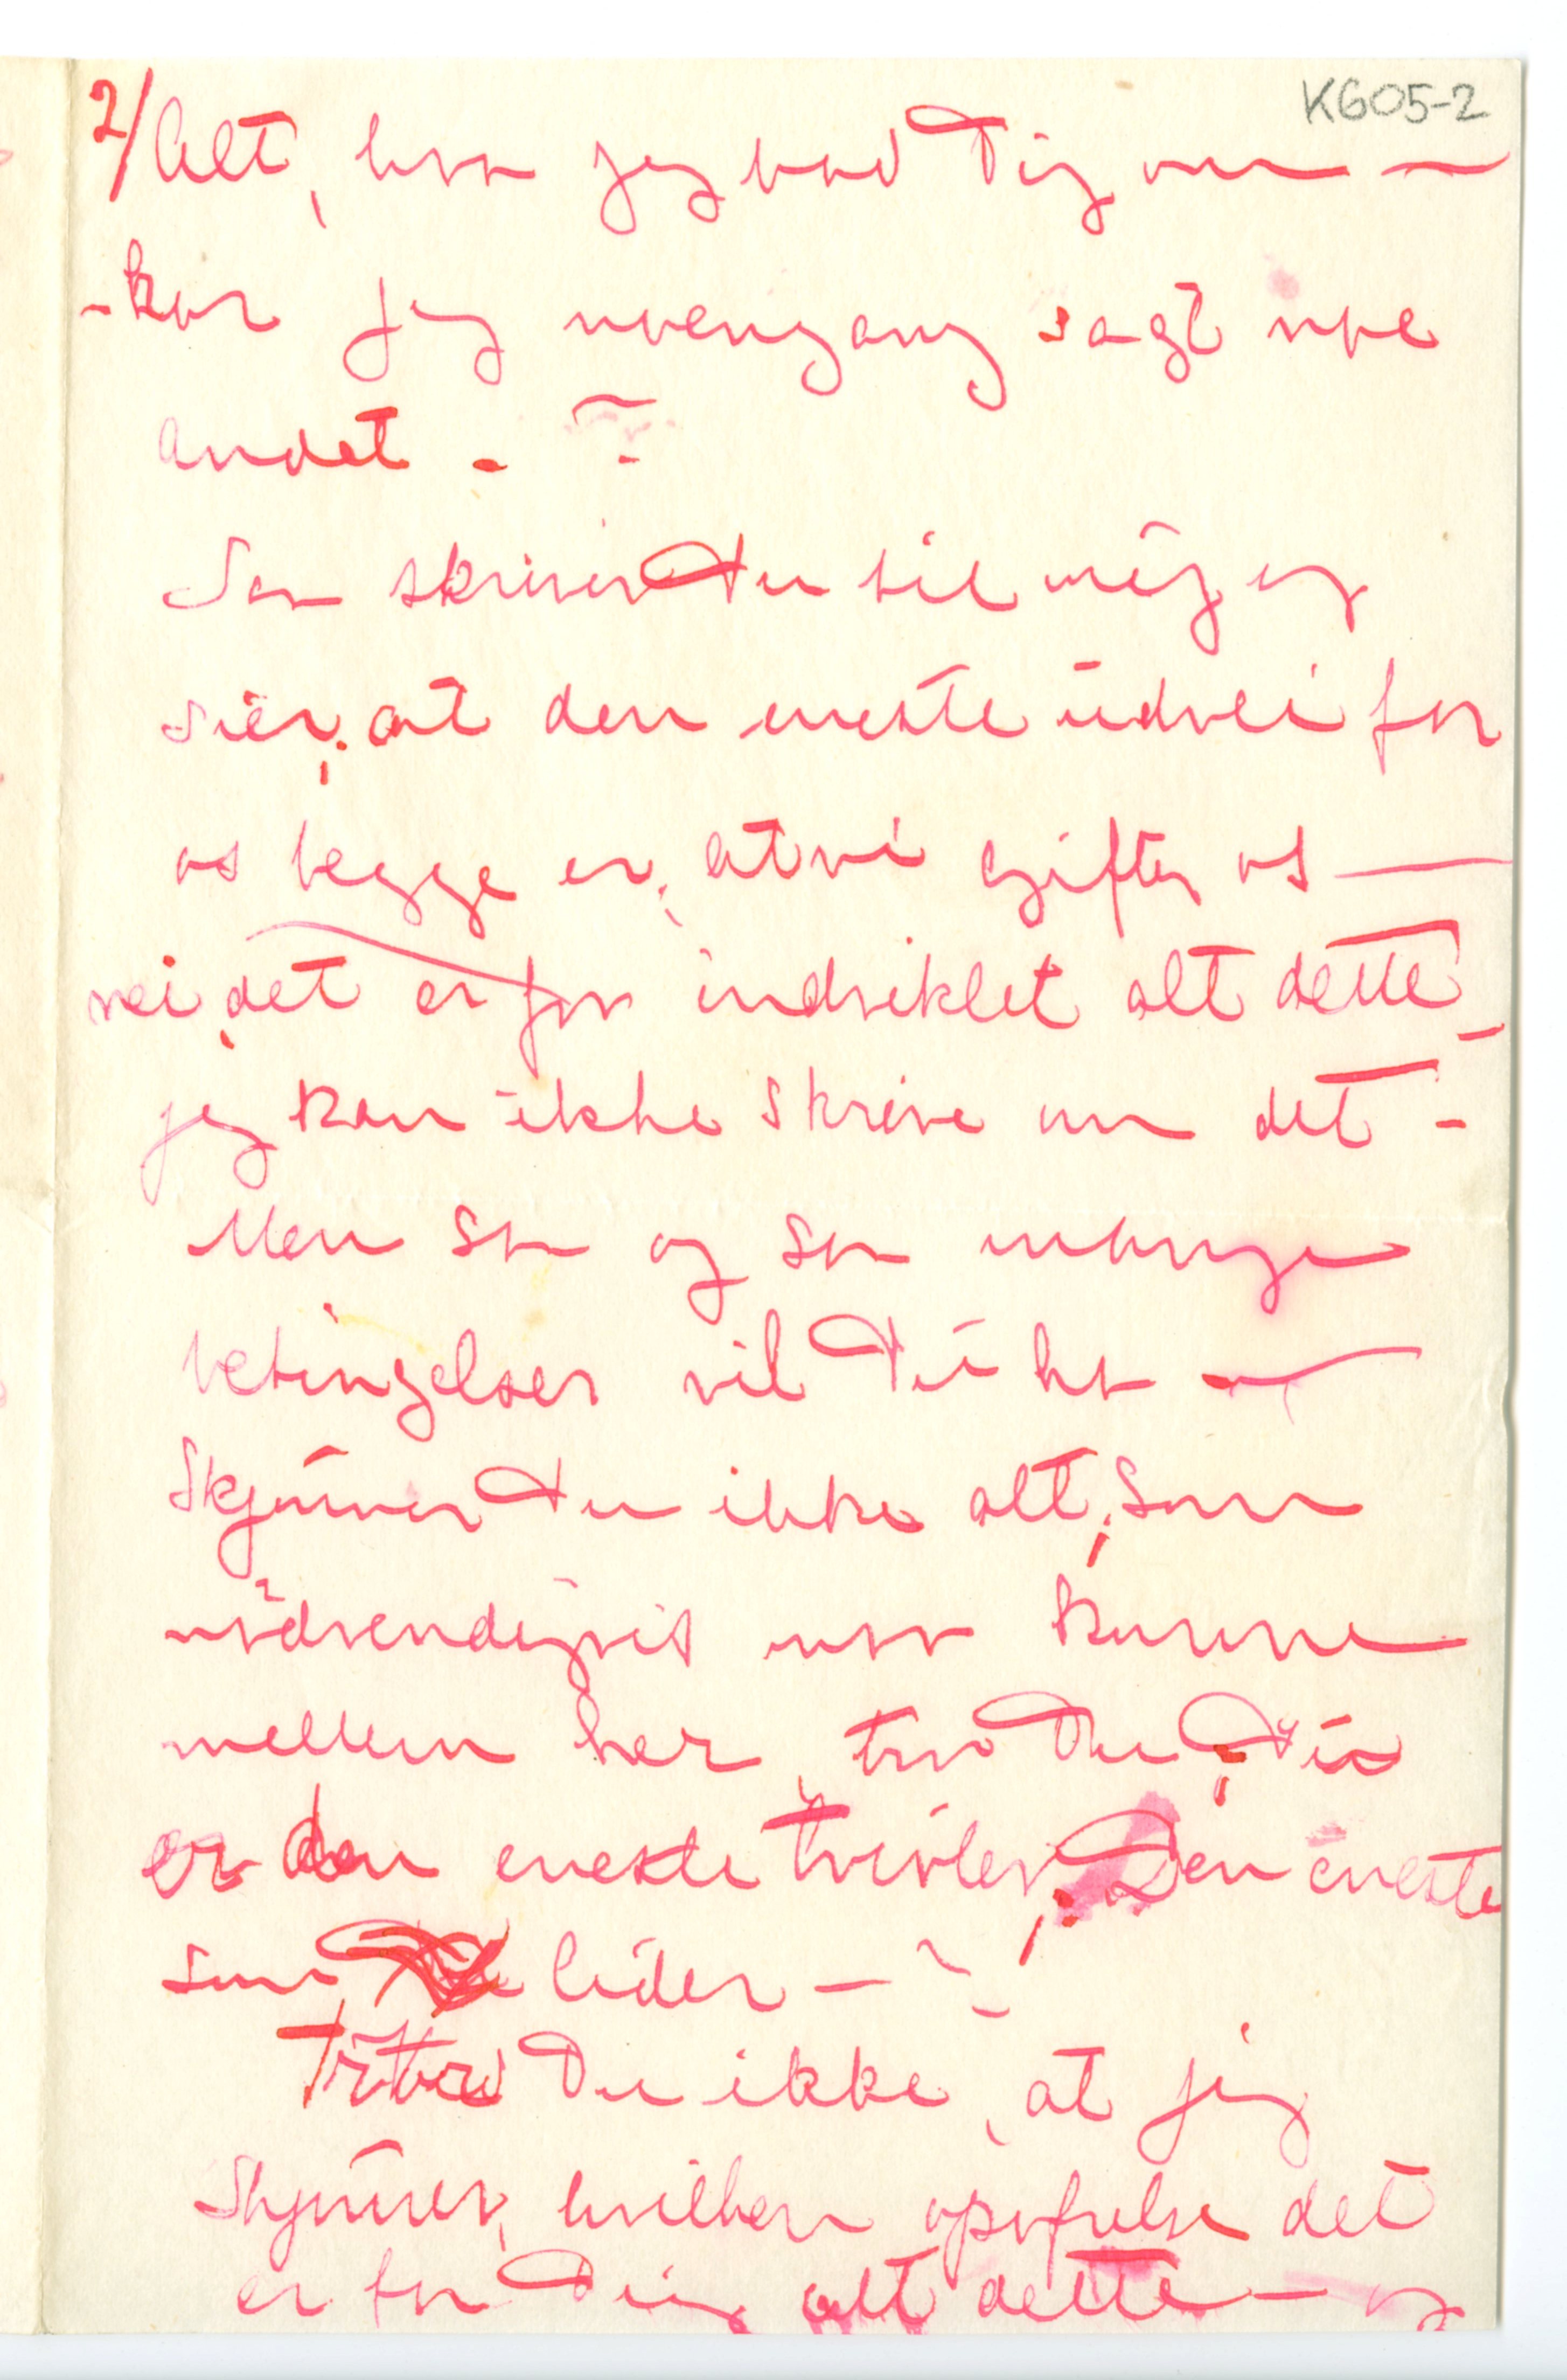 K605-2
2/ Alt, hva jeg bad Dig om —
- har jeg noengang sagt noe
andet - ~
Saa skriver Du til mig og
sier, at den eneste udvei for
os begge er, at vi gifter os —
nei, det er for indviklet alt dette -
jeg kan ikke skrive om det -
Men saa og saa mange
betingelser vil Du ha —
Skjønner Du ikke alt, som
nødvendigvis maa kunne
mellem her, tror Du, Du
er den eneste tvivler, Den eneste
som lider — ~
Tror Du ikke, at jeg
Skjønner, hvilken opofrelse det
er for Dig alt dette — og